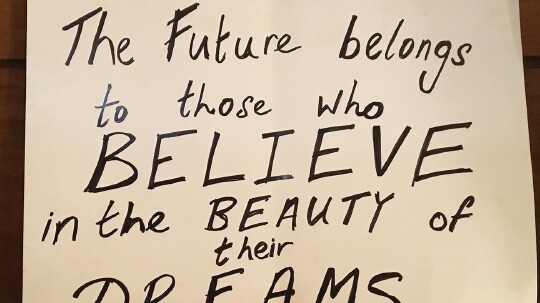 The Future belongs
to those who
BELIEVE
in the BEAUTY of
their
DREAMS